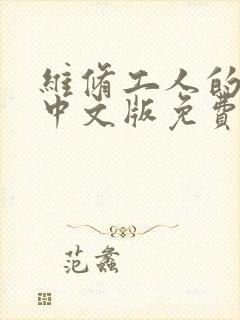 維脩工人的
中文版免費
范蠡